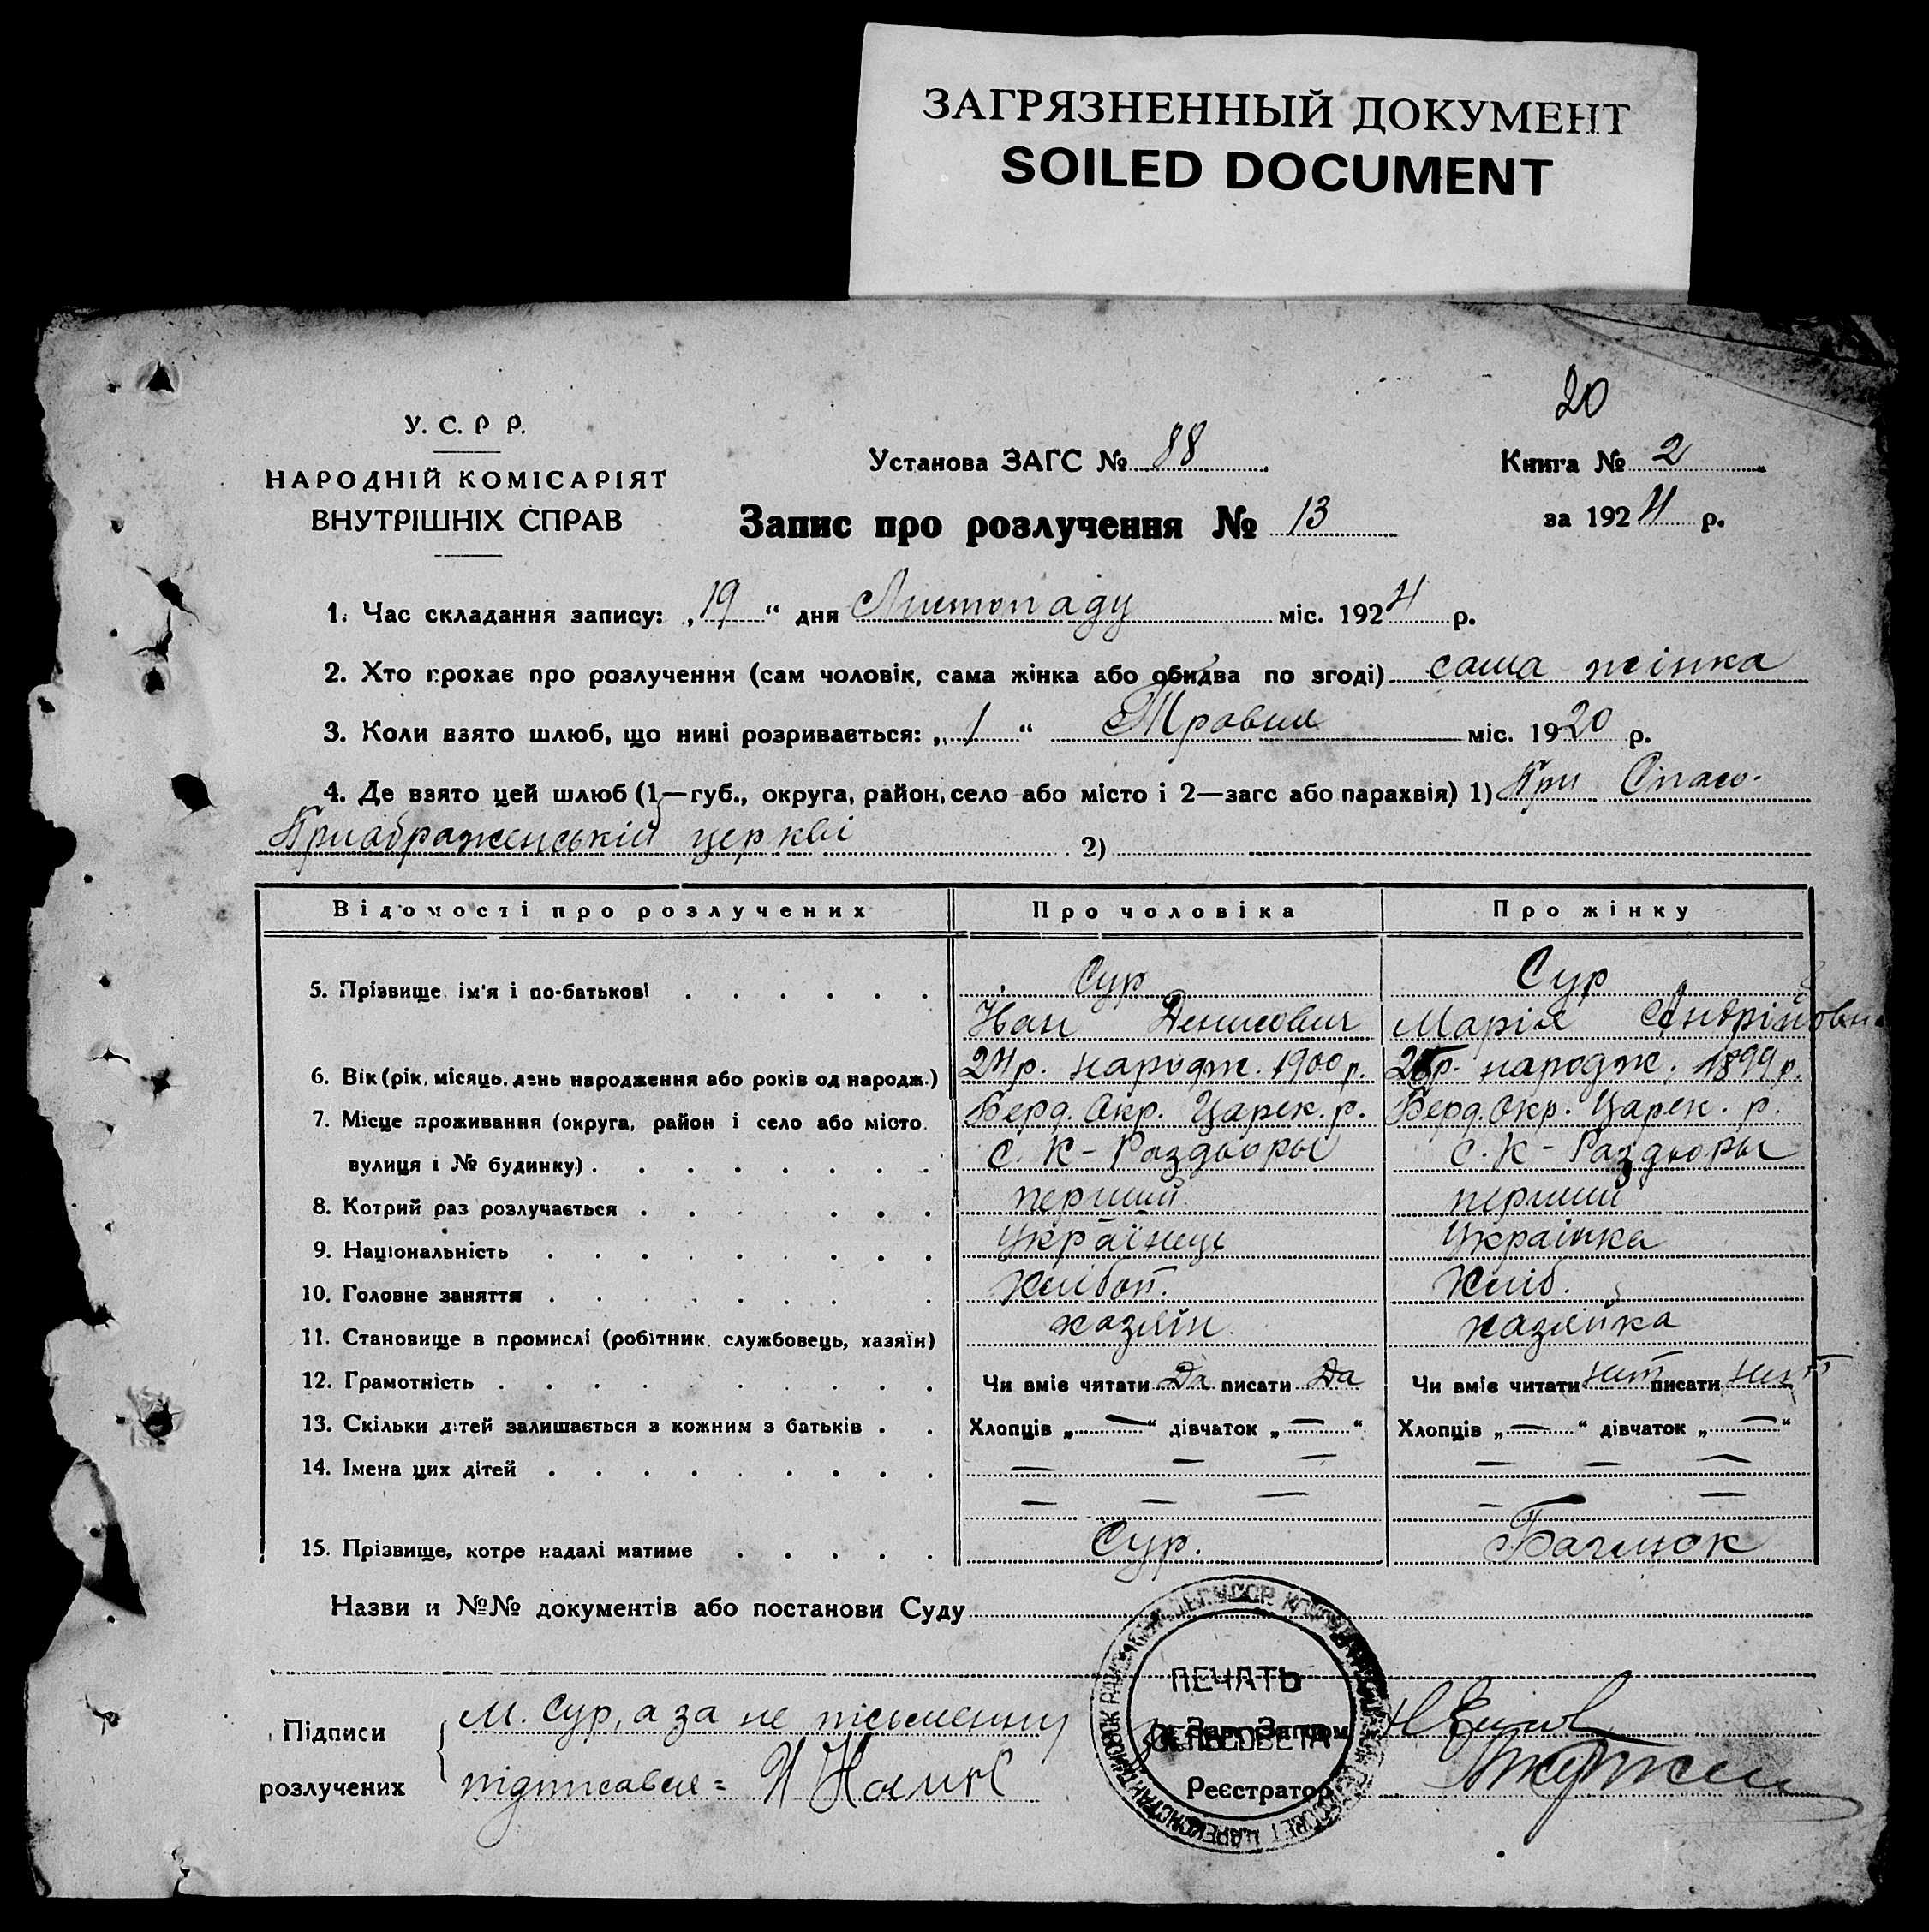 ЗАГРЯЗНЕННЫЙ ДОКУМЕНТ
SOILED DOCUMENT
20
У. С. Р Р.
Установа ЗАГС № 88
Книга № 2
НАРОДНІЙ КОМІСАРІЯТ
ВНУТРІШНІХ СПРАВ
Запис про розлучення № 13
за 1924 р.
1. Час складання запису: „19" дня Листопаду міс. 1924 р.
2. Хто прохає про розлучення (сам чоловік, сама жінка або обидва по згоді) сама жінка
3. Коли взято шлюб, що нині розривається: „1" Травня міс. 1920 р.
4. Де взято цей шлюб (1—губ., округа, район, село або місто і 2—загс або парахвія) 1) При Спасо-
Приображенській церкві 2)
Відомості про розлучених Про чоловіка Про жінку
5. Прізвище ім'я і по-батькові Сур Сур
Іван Денисович Марія Андріновн
6. Вік (рік, місяць, день народження або років од народж.) 24 р. народж. 1900 р. 25 р. народж. 1899 р.
7. Місце проживання (округа, район і село або місто Берд. Окр. Царек. р. Берд. Окр. Царек. р.
вулиця і № будинку) с. К-Раздоры с. К-Раздоры
8. Котрий раз розлучається перший перший
9. Національність Українець Украінка
10. Головне заняття Хлібоп. Хліб.
11. Становище в промислі (робітник, службовець, хазяїн) хазяін хазяйка
12. Грамотність Чи вміє читати Да писати Да Чи вміє читати нит писати нит
13. Скільки дітей залишається з кожним з батьків Хлопців „—" дівчаток „—" Хлопців „—" дівчаток „—"
14. Імена цих дітей — — — — — —
— — — — —
15. Прізвище, котре надалі матиме Сур.
Назви и №№ документів або постанови Суду
Підписи М. Сур, а за не письменну
розлучених підписався =
ПЕЧАТЬ
Зав. Загсом
СЕЛЬСОВЕТА
Реєстратор